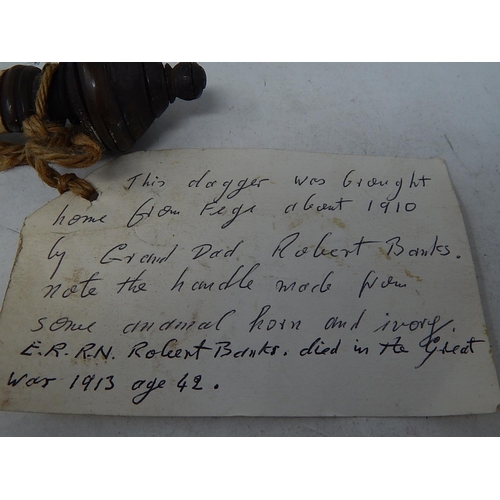 This dagger was brought
home from Fege about 1910
by Grand Dad Robert Banks.
note the handle made from
some anamal horn and ivory.
E.R.R.N. Robert Banks. died in the Great
War 1913 age 42.